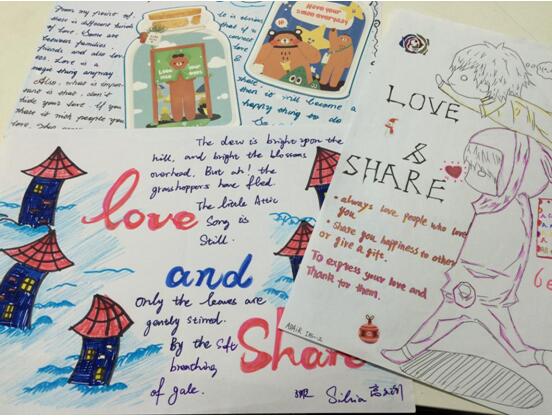 From my point of.
there is different kinds
of love. Some are
between families
friends and also lov-
ers. Love is a
magic thing anyway
Also, what is impor-
tant is that, don't
hide your love. If you
share it with people you
love,
is obvious
that if
then it will become a
happy thing to do
LOOK
INTO
YOUR
EYES
Hi
Have your
smile everyday
LOVE
&
SHARE
• always love people who love
you
• Share you happiness to other
or give a gift.
To express your love and
Thank for them.
The dew is bright upon the
hill, and bright the blossoms
overhead. But ah! the
grasshoppers have fled.
The little Attic
Song is
Still.
love
and
Share
Only the leaves are
gently stirred.
By the soft
breathing
of gale.
Silvia